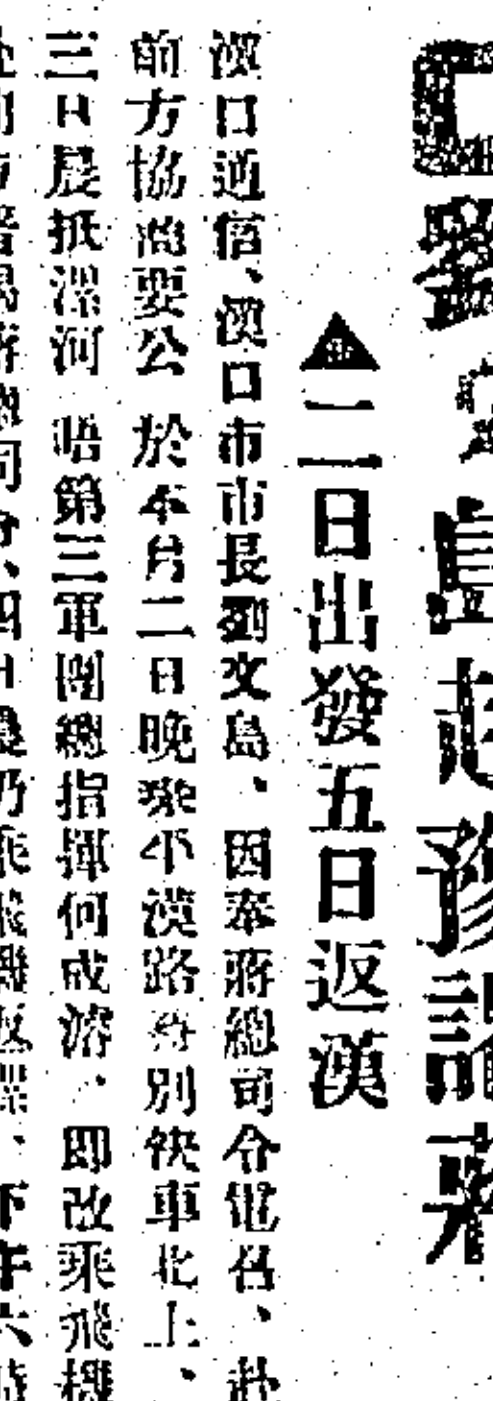 劉文島赴豫謁蔣
▲二日出發五日返漢
漢口通信、漢口市市長劉文島、因奉蔣總司令電召、赴
前方協商要公 於本月二日晚乘平漢路特別快車北上、
三日晨抵漯河 晤第三軍團總指揮何成濬、即改乘飛機
蔣總司令、四日晨仍乘飛機返漯、下午六時